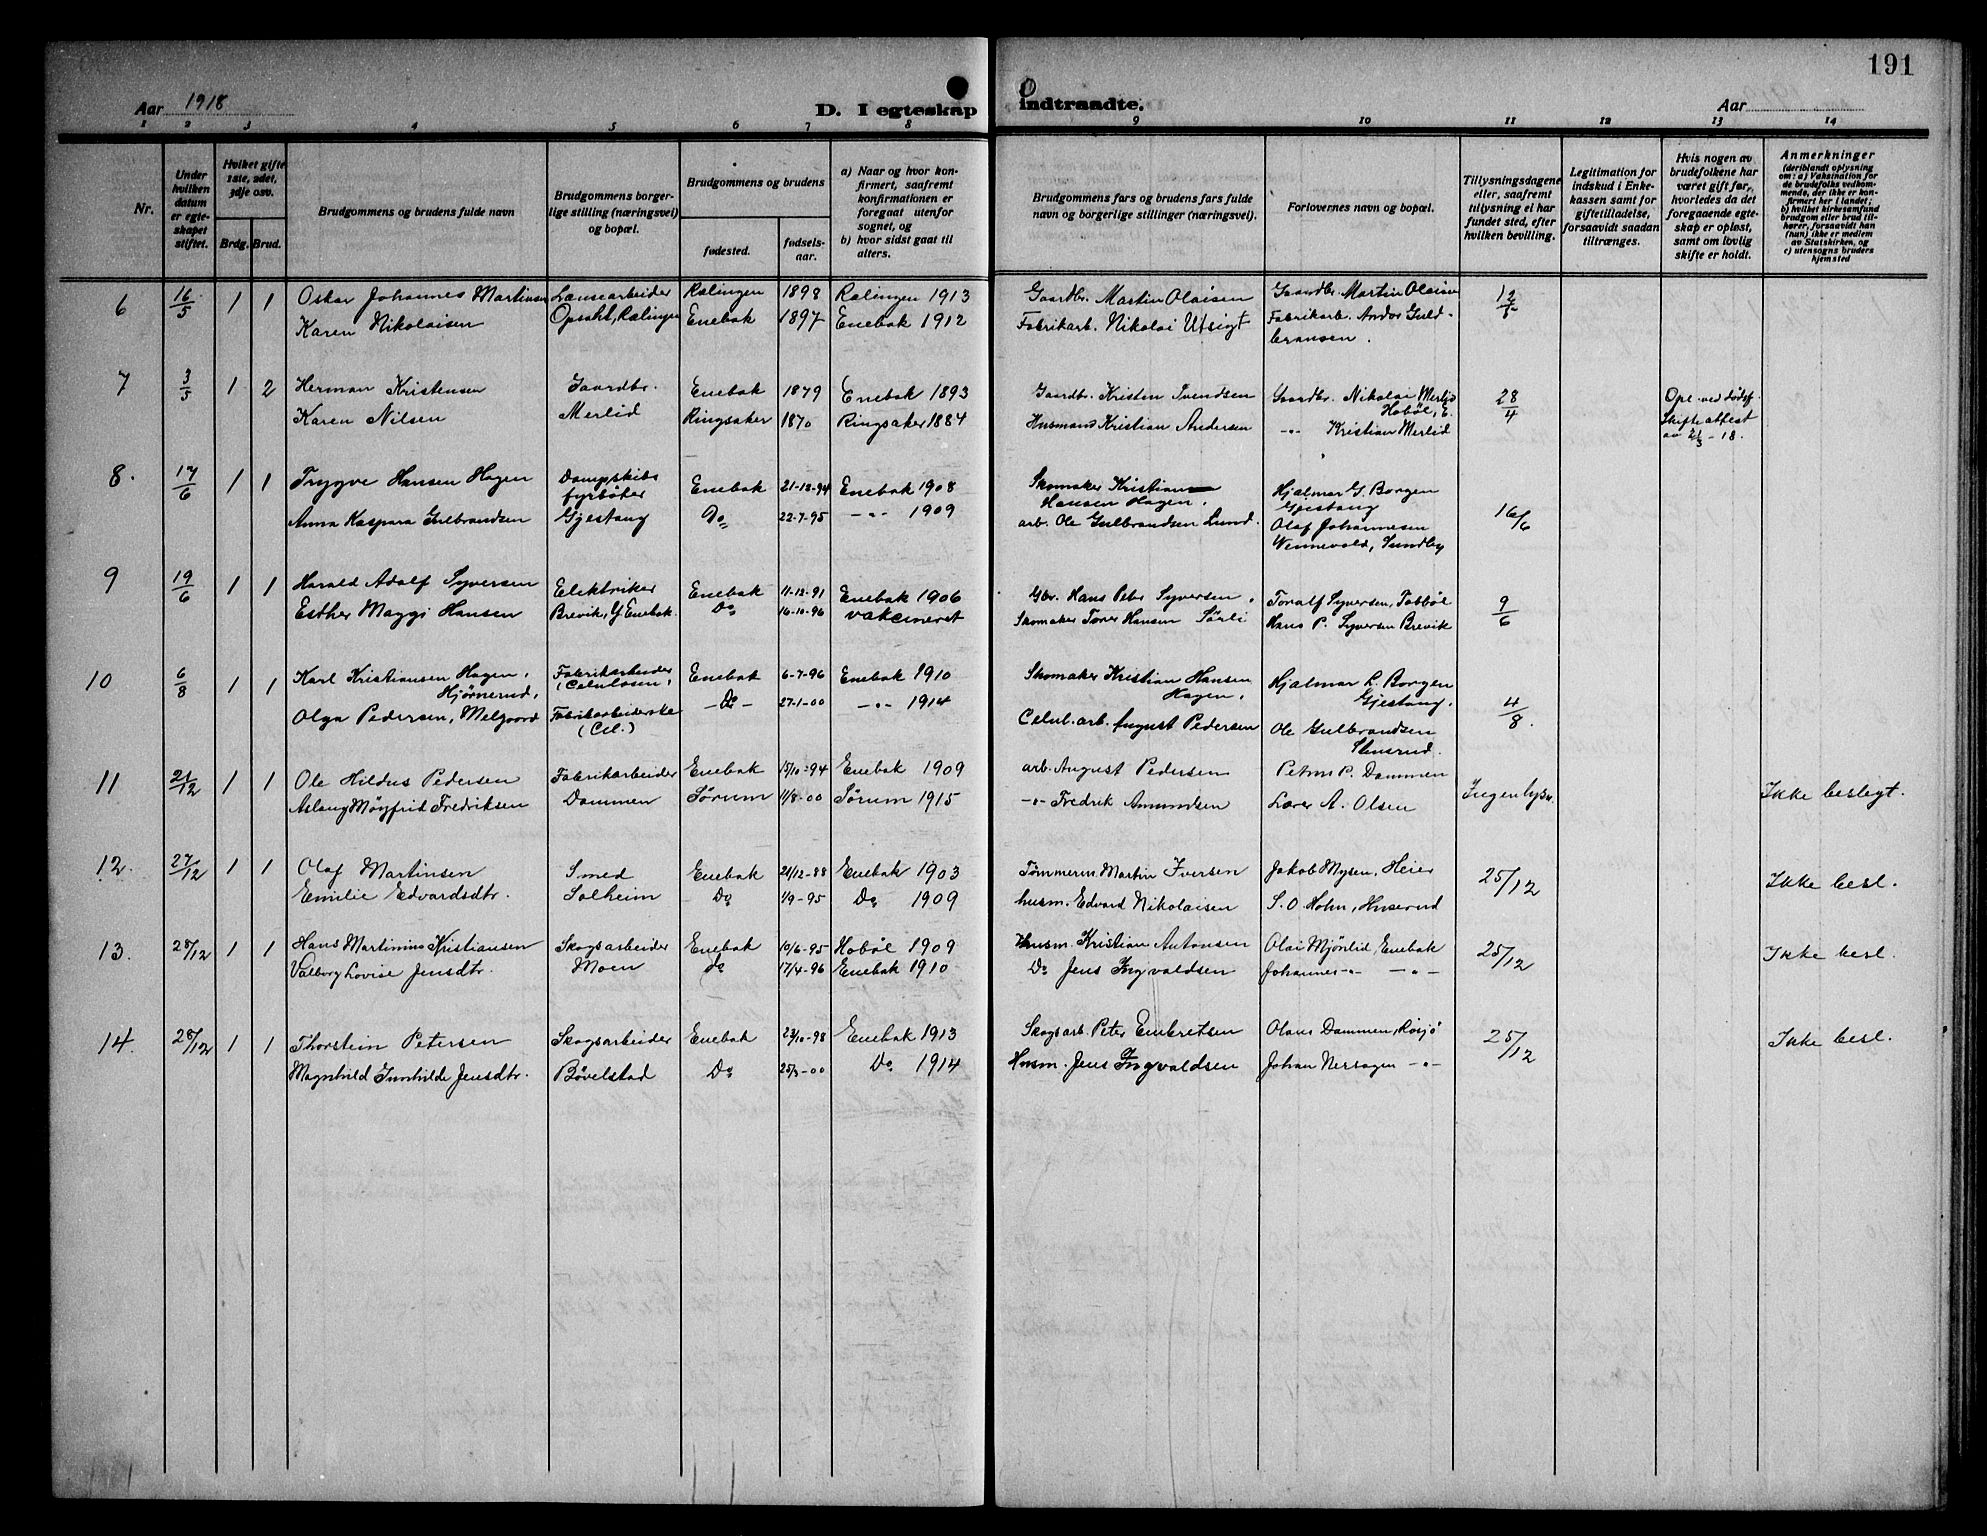 191
Aar 1918
D. I egteskap indtraadte.
Aar
1 2 3 4 5 6 7 8 9 10 11 12 13 14
Nr.
Under hvilken datum er egteskapet stiftet.
Hvilket gifte 1ste, 2det, 3dje osv.
Brdg. Brud.
Brudgommens og brudens fulde navn
Brudgommens borgerlige stilling (næringsvei) og bopæl.
Brudgommens og brudens
fødested.
fødselsaar.
a) Naar og hvor konfirmert, saafremt konfirmationen er foregaat utenfor sognet, og
b) hvor sidst gaat til alters.
Brudgommens fars og brudens fars fulde navn og borgerlige stillinger (næringsvei).
Forlovernes navn og bopæl.
Tillysningsdagene eller, saafremt tillysning ei har fundet sted, efter hvilken bevilling.
Legitimation for indskud i Enkekassen samt for giftetilladelse, forsaavidt saadan tiltrænges.
Hvis nogen av brudefolkene har været gift før, hvorledes da det foregaaende egteskap er opløst, samt om lovlig skifte er holdt.
Anmerkninger (deriblandt oplysning om: a) Vaksination for de brudefolks vedkommende, der ikke er konfirmert her i landet; b) hvilket kirkesamfund brudgom eller brud tilhører, forsaavidt han (hun) ikke er medlem av Statskirken, og c) utensogns bruders hjemsted
6 16/5 1 1 Oskar Johannes Martinsen Lænsearbeider Rælingen 1898 Rælingen 1913 Gaardbr. Martin Olaisen Gaardbr. Martin Olaisen 12/5
Karen Nikolaisen Opsahl, Rælingen Enebak 1897 Enebak 1912 Fabrikarb. Nikolai Utsigt Fabrikarb. Andor Guld-
bransen.
7 3/5 1 2 Herman Kristensen Gaardbr. Enebak 1879 Enebak 1893 Gaardbr. Kristen Svendsen Gaardbr. Nikolai Merlid 28/4 Opl. ved dødsf.
Hobøl, E.
Karen Nilsen Merlid Ringsaker 1870 Ringsaker 1884 Husmand Kristian Andersen -"- Kristian Merlid Skifteattest
av 2/3 - 18.
8. 17/6 1 1 Trygve Hansen Hagen Dampskibs Enebak 21-12-94 Enebak 1908 Skomaker Kristian Hjalmar G. Borgen 16/6
fyrbøter Hansen Hagen. Gjestang
Anna Kaspara Gulbrandsen Gjestang Do 22-7-95 -"- 1909 arb. Ole Gulbrandsen Lund. Olaf Johannesen
Wennevold, Sundby
9 19/6 1 1 Harald Adolf Syversen Elektriker Enebak 11-12-91 Enebak 1906 Gbr. Hans Peter Syversen. Toralf Syversen, Tobbøl 9/6
Esther Maggi Hansen Brevik, Y. Enebak. Do 16-10-96 vakcineret Skomaker Torer Hansen Sørli Hans P. Syversen Brevik
10 6/8 1 1 Karl Kristiansen Hagen, Fabrikarbeider Enebak 6-7-96 Enebak 1910 Skomaker Kristian Hansen Hjalmar L. Borgen 4/8.
Hjørnerud, (Celulosen) Hagen. Gjestang.
Olga Pedersen, Melgaard Fabrikarbeiderske -Do- 27-1-00 -"- 1914 Celul. arb. August Pedersen Ole Gulbrandsen
(Cel.) Stensrud.
11 21/12 1 1 Ole Hildus Pedersen Fabrikarbeider Enebak 15/10-94 Enebak 1909 arb. August Pedersen Petrus P. Dammen Ingen lysn. Ikke beslegt.
Aslaug Møyfrid Fredriksen Dammen Sørum 11/8-00 Sørum 1915 -"- Fredrik Amundsen Lærer A. Olsen
12. 27/12 1 1 Olaf Martinsen Smed Enebak 21/12-88 Enebak 1903 Tømmerm. Martin Iversen Jakob Mysen, Heier 25/12 Ikke besl.
Emilie Edvardsdtr. Solheim Do 1/9-95 Do 1909 husm. Edvard Nikolaisen S. O. Holm, Huserud
13. 28/12 1 1 Hans Martinius Kristiansen Skogsarbeider Enebak 10/6-95 Hobøl 1909 Husm. Kristian Antonsen Olai Mjønlid, Enebak 25/12 Ikke besl.
Valborg Lovise Jensdtr. Moen do 17/4-96 Enebak 1910 Do Jens Ingvaldsen Johannes -"- -"-
14. 28/12 1 1 Thorstein Petersen Skogsarbeider Enebak 23/10-98 Enebak 1913 Skogsarb. Peter Embretsen Olaus Dammen, Røsjø 25/12 Ikke besl.
Magnhild Gunhilde Jensdtr. Bøvelstad Do 25/3-00 Do 1914 Husm. Jens Ingvaldsen Johan Nershagen -"-